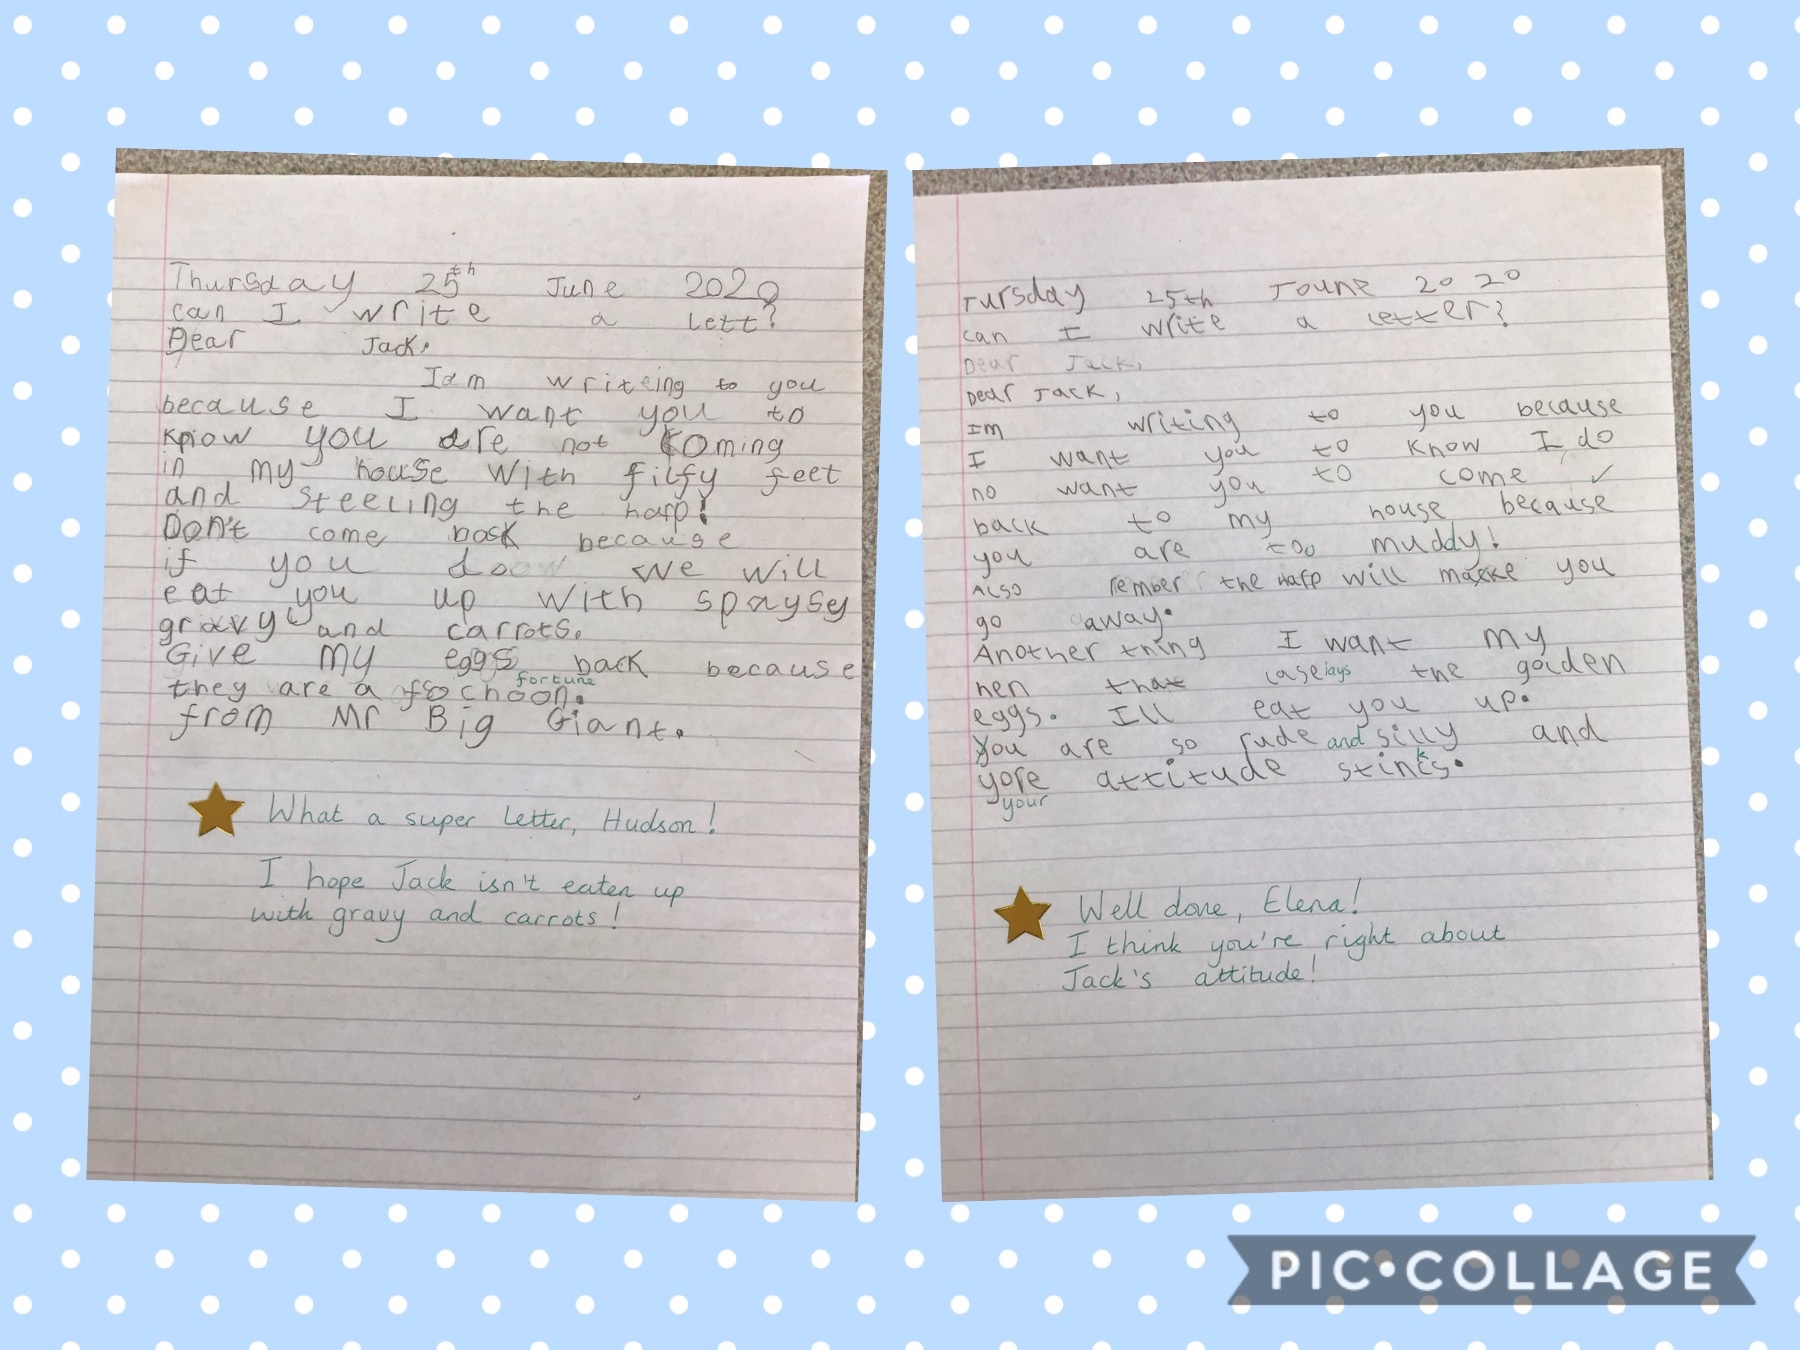 Thursday 25th June 2020
can I write a lett?
Dear Jack,
Iam writeing to you
because I want you to
know you are not coming
in my house with filfy feet
and steeling the harp!
Don't come back because
if you do we will
eat you up with spaysey
gravy and carrots.
Give my eggs back because
fortune
they are a fochoon.
from Mr Big Giant.
What a super letter, Hudson!
I hope Jack isn't eaten up
with gravy and carrots!
Tursday 25th Joune 2020
can I write a letter?
Dear Jack,
Dear Jack,
Im writing to you because
I want you to know I do
no want you to come
back to my house because
you are too muddy!
Also rember the harp will make you
go away.
Another thing I want my
hen that lays the golden
eggs. Ill eat you up.
You are so rude and silly and
yore attitude stinks.
your
Well done, Elena!
I think you're right about
Jack's attitude!
PIC•COLLAGE